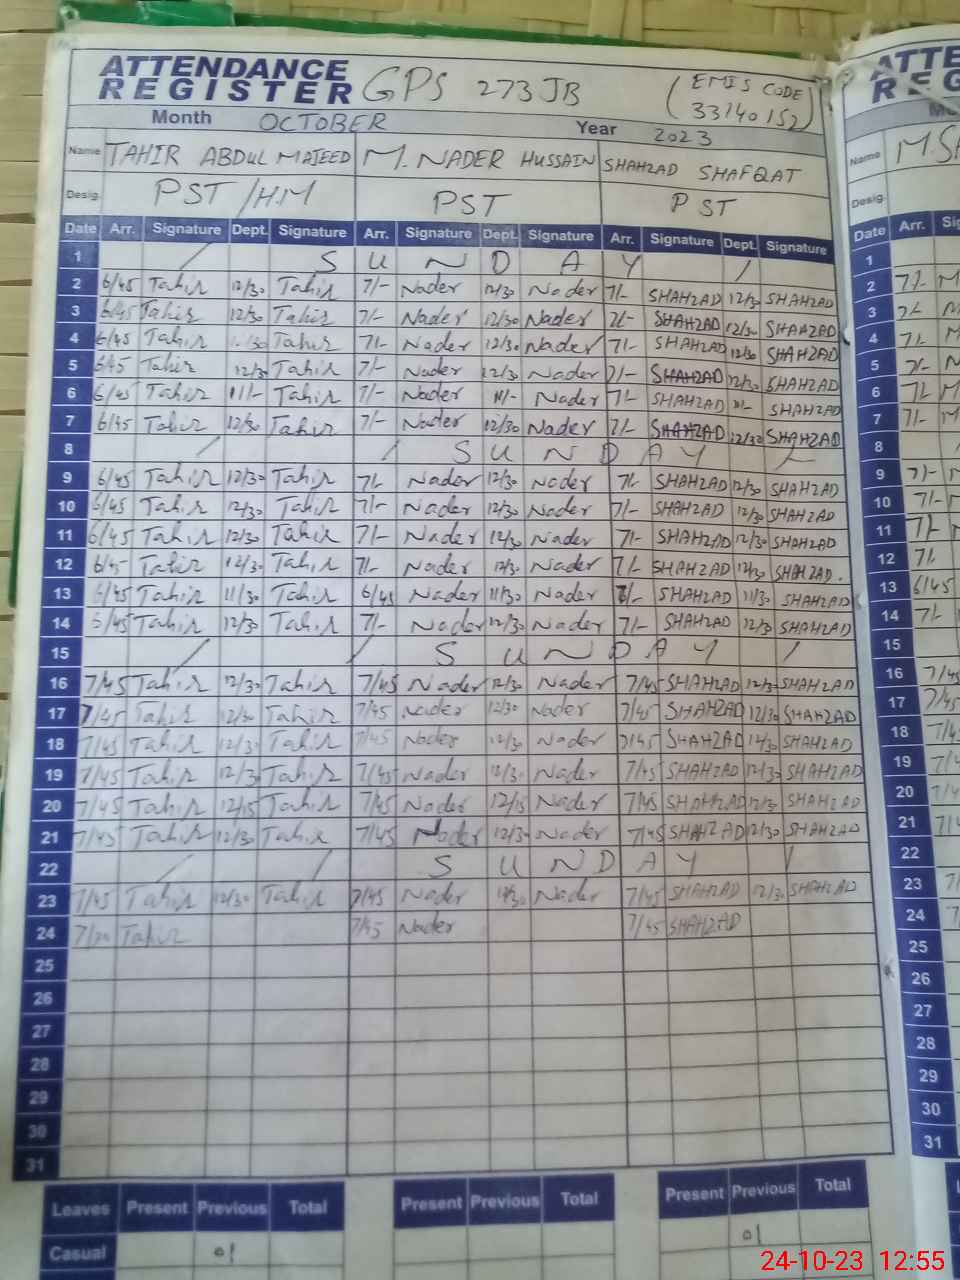 ATTENDANCE REGISTER GPS 273JB (EMIS CODE 33140152)
Month OCTOBER Year 2023
Name TAHIR ABDUL MAJEED M. NADER HUSSAIN SHAHZAD SHAFQAT
Desig. PST/H.M PST PST
Date Arr. Signature Dept. Signature Arr. Signature Dept. Signature Arr. Signature Dept. Signature
1 / SUNDAY /
2 6/45 Tahir 12/30 Tahir 7/- Nader 12/30 Nader 7/- SHAHZAD 12/30 SHAHZAD
3 6/45 Tahir 12/30 Tahir 7/- Nader 12/30 Nader 7/- SHAHZAD 12/30 SHAHZAD
4 6/45 Tahir Tahir 7/- Nader 12/30 Nader 7/- SHAHZAD 12/30 SHAHZAD
5 6/45 Tahir 12/30 Tahir 7/- Nader 12/30 Nader 7/- SHAHZAD 12/30 SHAHZAD
6 6/45 Tahir 11/- Tahir 7/- Nader 11/- Nader 7/- SHAHZAD SHAHZAD
7 6/45 Tahir 12/30 Tahir 7/- Nader 12/30 Nader 7/- SHAHZAD 12/30 SHAHZAD
8 / / SUNDAY /
9 6/45 Tahir 12/30 Tahir 7/- Nader 12/30 Nader 7/- SHAHZAD 12/30 SHAHZAD
10 6/45 Tahir 12/30 Tahir 7/- Nader 12/30 Nader 7/- SHAHZAD 12/30 SHAHZAD
11 6/45 Tahir 12/30 Tahir 7/- Nader 12/30 Nader 7/- SHAHZAD 12/30 SHAHZAD
12 Tahir 12/30 Tahir 7/- Nader 12/30 Nader 7/- SHAHZAD 12/30 SHAHZAD.
13 6/45 Tahir 11/30 Tahir 6/45 Nader 11/30 Nader SHAHZAD 11/30 SHAHZAD
14 6/45 Tahir 12/30 Tahir 7/- Nader 12/30 Nader 7/- SHAHZAD 12/30 SHAHZAD
15 / / SUNDAY /
16 7/45 Tahir 12/30 Tahir 7/45 Nader 12/30 Nader 7/45 SHAHZAD 12/30 SHAHZAD
17 7/45 Tahir 12/30 Tahir 7/45 Nader 12/30 Nader 7/45 SHAHZAD 12/30 SHAHZAD
18 7/45 Tahir 12/30 Tahir 7/45 Nader 12/30 Nader 7/45 SHAHZAD 12/30 SHAHZAD
19 7/45 Tahir 12/30 Tahir 7/45 Nader 12/30 Nader 7/45 SHAHZAD 12/30 SHAHZAD
20 7/45 Tahir 12/15 Tahir 7/45 Nader 12/15 Nader 7/45 SHAHZAD 12/30 SHAHZAD
21 7/45 Tahir 12/30 Tahir 7/45 Nader 12/30 Nader 7/45 SHAHZAD 12/30 SHAHZAD
22 / / SUNDAY /
23 7/45 Tahir 12/30 Tahir 7/45 Nader 12/30 Nader 7/45 SHAHZAD 12/30 SHAHZAD
24 Tahir 7/45 Nader 7/45 SHAHZAD
25
26
27
28
29
30
31
Leaves Present Previous Total Present Previous Total Present Previous Total
Casual 01 01
Name
Desig.
Date Arr.
1
2 7/-
3 7/-
4 7/-
5 7/-
6 7/-
7 7/-
8
9 7/-
10 7/-
11 7/-
12 7/-
13 6/45
14 7/-
15
16 7/45
17 7/45
18
19
20
21
22
23
24
25
26
27
28
29
30
31
24-10-23 12:55